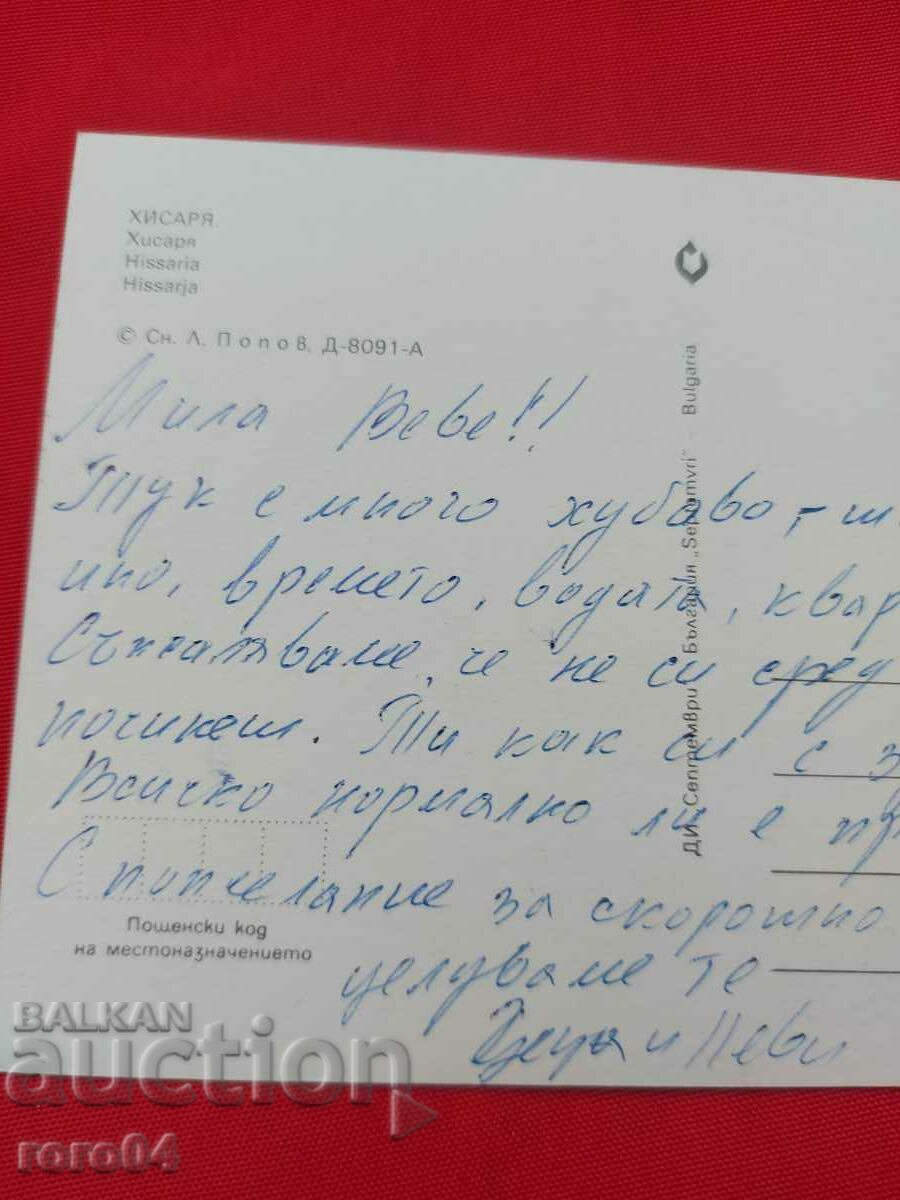 ХИСАРЯ.
Хисаря
Hissaria
Hissarja
© Сн. Л. Попов, Д-8091-А
Мила Веве!!
Тук е много хубаво, - ти
ино, времето, водата, квар
Съжаляваме, че не си сред
почикеш. Ти как си с з
Всичко нормално ли е пр
С пожелание за скорошно
целуваме те
Цеца и Неви
Пощенски код
на местоназначението
ДИ „Септември България „Septemvri" - Bulgaria
BALKAN
auction
roro04